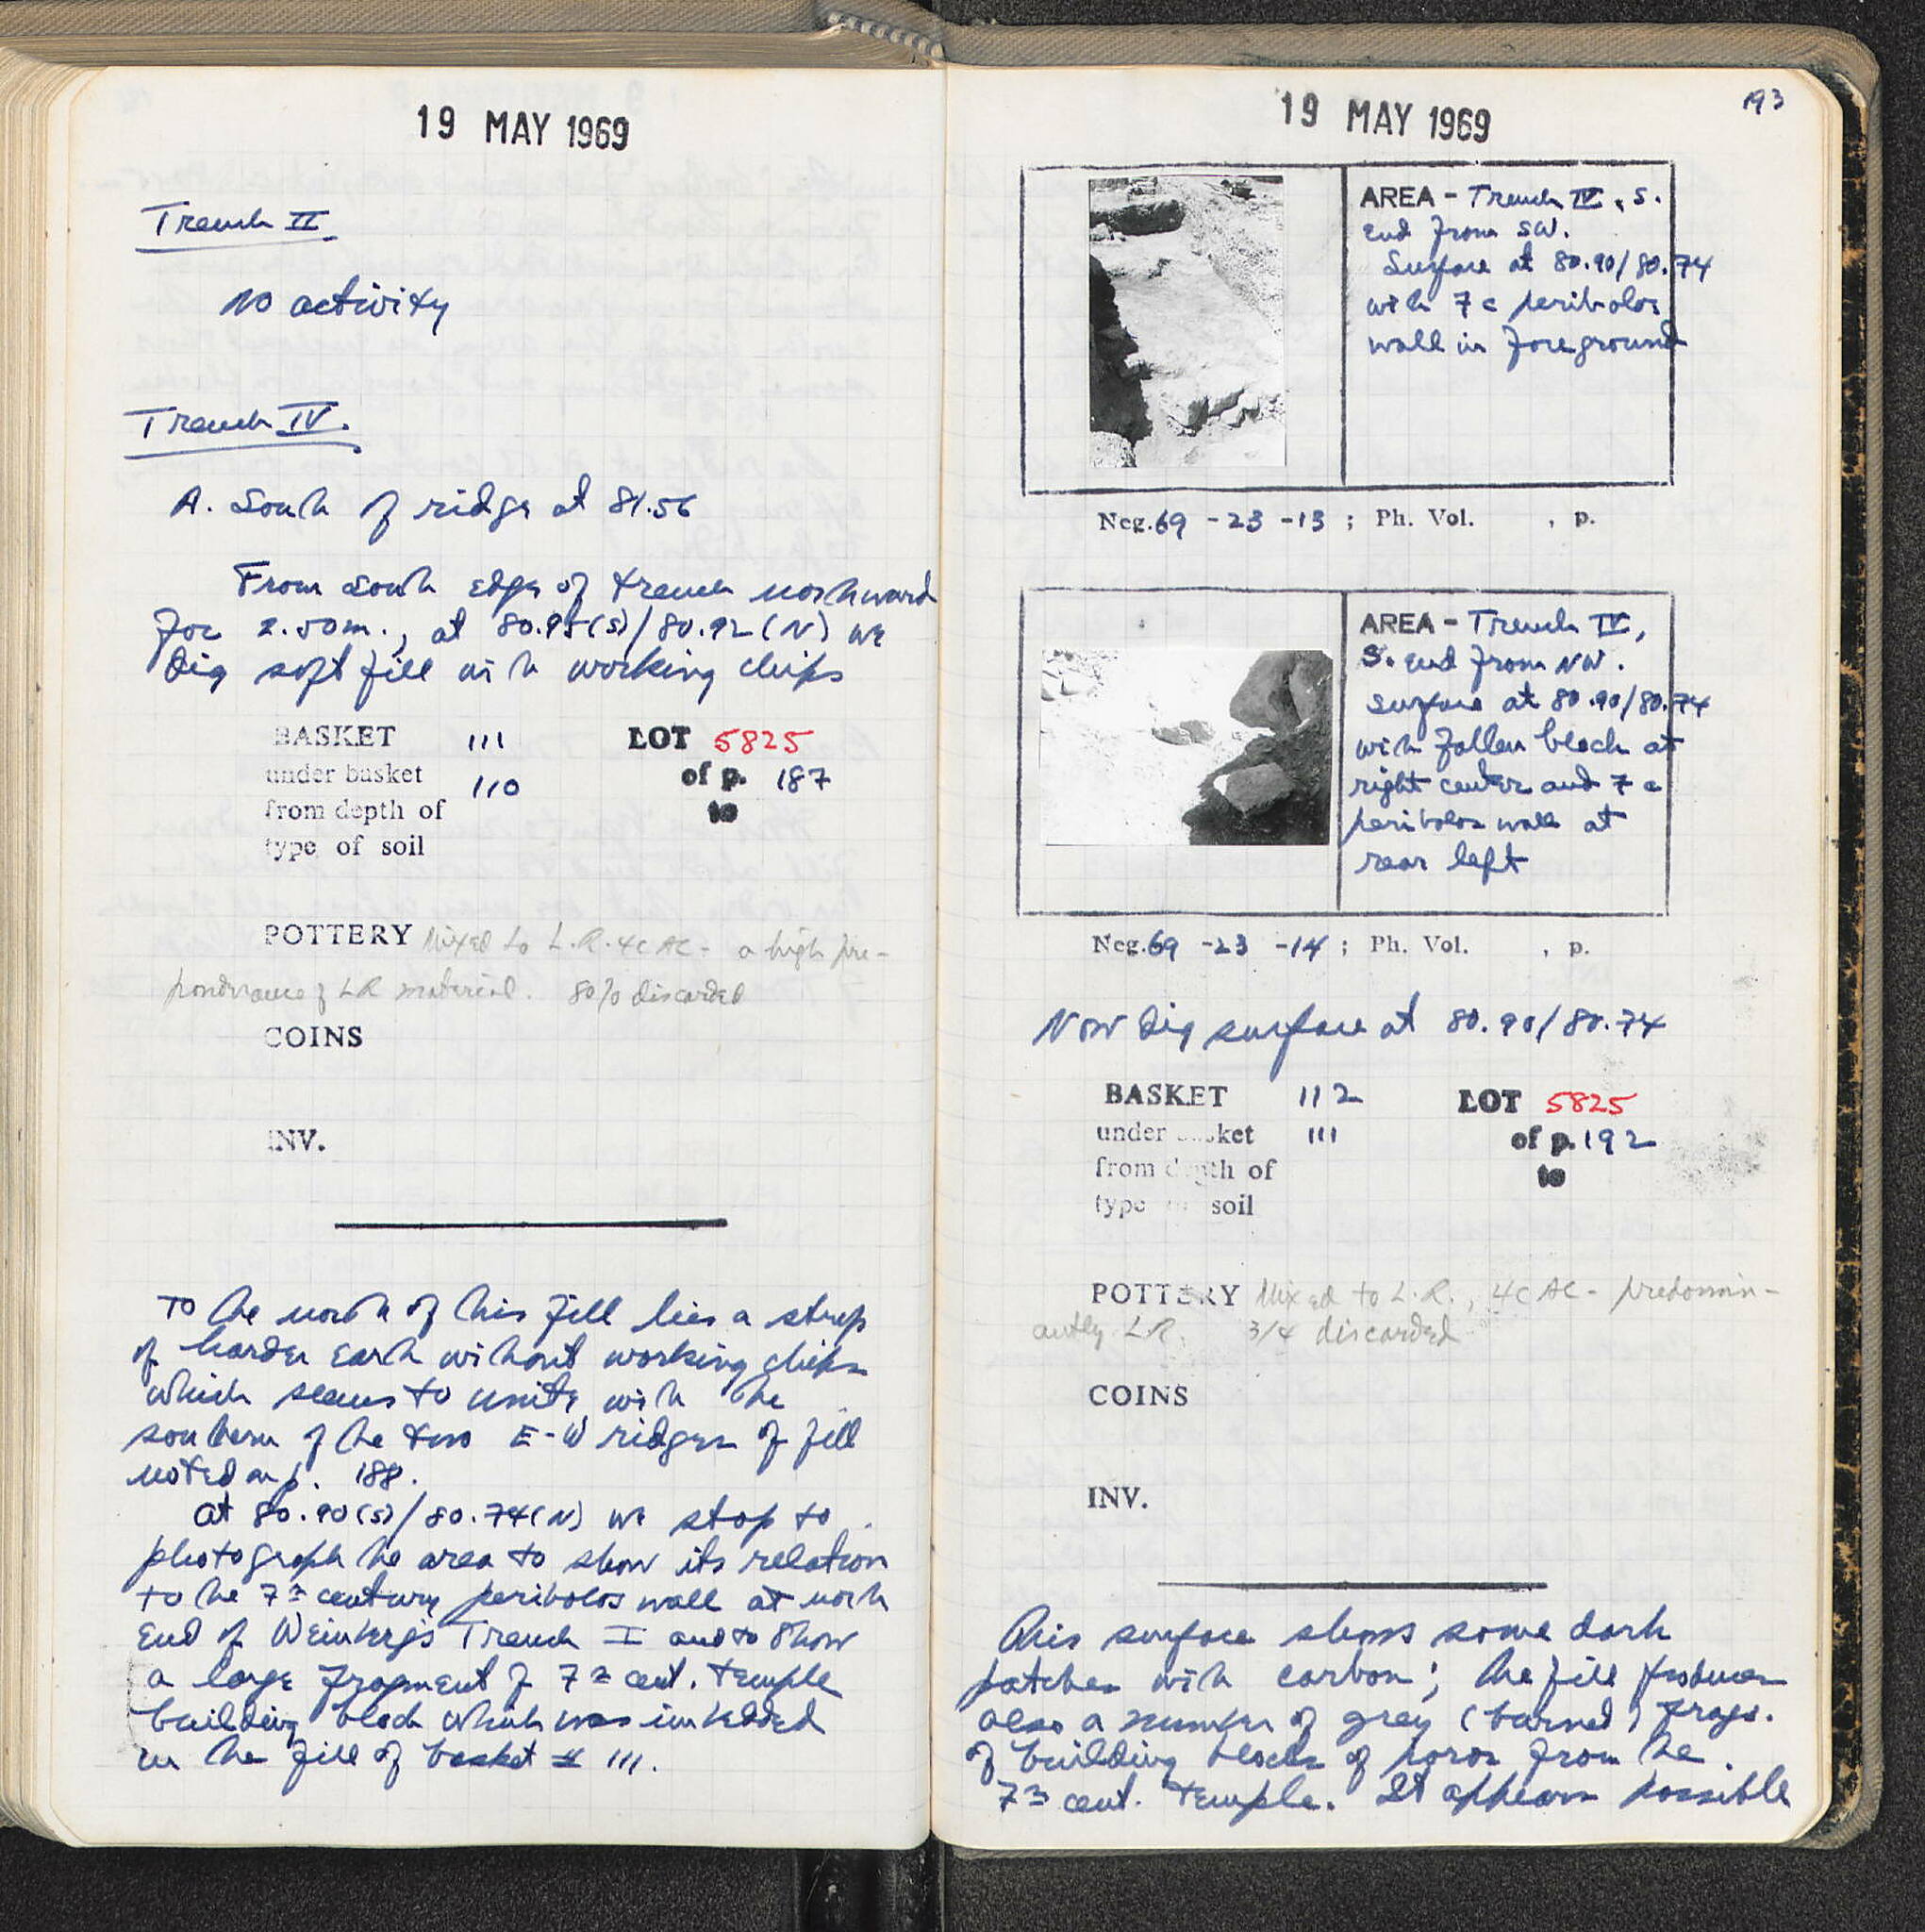 19 MAY 1969
Trench II
No activity
Trench IV.
A. South of ridge at 81.56
From South edge of trench northward
for 2.50m., at 80.95(S)/80.92(N) we
dig soft fill with working chips
BASKET 111 LOT 5825
under basket 110 of p. 187
from depth of to
type of soil
POTTERY Mixed to L.R. 4c AC - a high pre-
ponderance of LR material. 80% discarded
COINS
INV.
To the north of this fill lies a strip
of harder earth without working chips
which seems to unite with the
southern of the two E-W ridges of fill
noted on p. 188.
At 80.90(S)/80.74(N) we stop to
photograph the area to show its relation
to the 7th century peribolos wall at north
end of Weinberg's Trench I and to show
a large fragment of 7th cent. temple
building block which was imbedded
in the fill of basket # 111.
19 MAY 1969
193
AREA - Trench IV, S.
end from SW.
Surface at 80.90/80.74
with 7c peribolos
wall in foreground
Neg. 69 - 23 - 13 ; Ph. Vol. , p.
AREA - Trench IV,
S. end from NW.
Surface at 80.90/80.74
with fallen block at
right center and 7c
peribolos wall at
rear left
Neg. 69 - 23 - 14 ; Ph. Vol. , p.
Now dig surface at 80.90/80.74
BASKET 112 LOT 5825
under basket 111 of p. 192
from depth of to
type of soil
POTTERY Mixed to L.R., 4c AC - predomin-
antly LR. 3/4 discarded
COINS
INV.
This surface shows some dark
patches with carbon; the fill produces
also a number of grey (burned) frags.
of building blocks of poros from the
7th cent. temple. It appears possible